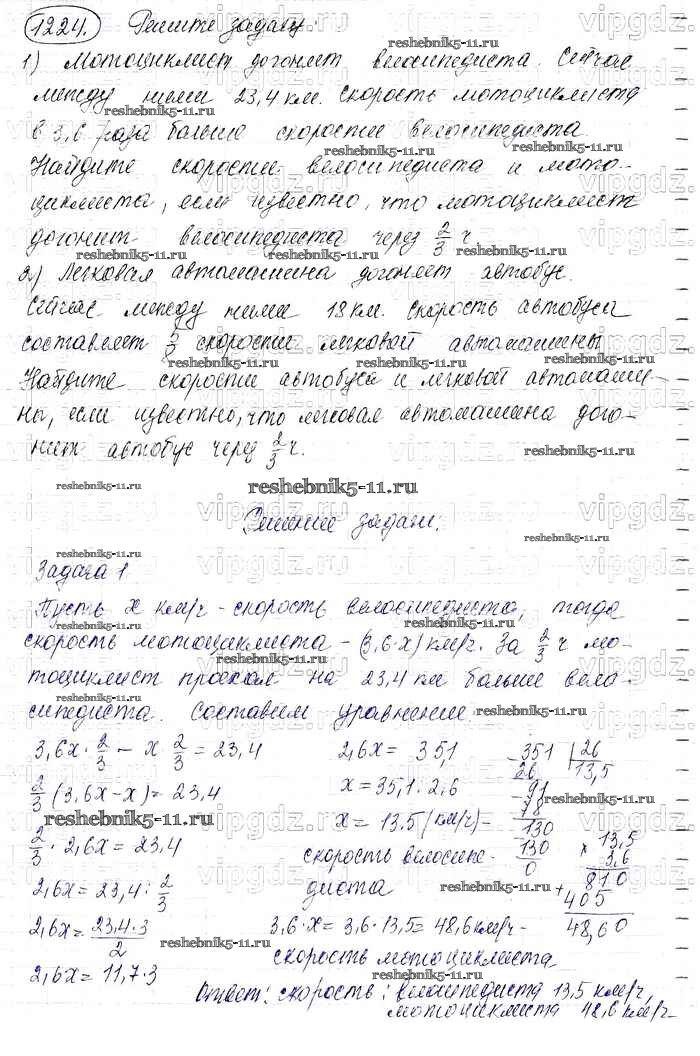 1224. Решите задачу:
1) Мотоциклист догоняет велосипедиста. Сейчас
между ними 23,4 км. Скорость мотоциклиста
в 3,6 раза больше скорости велосипедиста.
Найдите скорости велосипедиста и мото-
циклиста, если известно, что мотоциклист
догонит велосипедиста через 2/3 ч.
2) Легковая автомашина догоняет автобус.
Сейчас между ними 18 км. Скорость автобуса
составляет скорости легковой автомашины.
Найдите скорости автобуса и легковой автомаши-
ны, если известно, что легковая автомашина дого-
нит автобус через 2/3 ч.
reshebnik5-11.ru
Решение задачи:
Задача 1.
Пусть x км/ч - скорость велосипедиста, тогда
скорость мотоциклиста - (3,6·x) км/ч. За 2/3 ч мо-
тоциклист проехал на 23,4 км больше вело-
сипедиста. Составим уравнение
3,6x · 2/3 - x · 2/3 = 23,4
2/3 (3,6x - x) = 23,4
2/3 · 2,6x = 23,4
2,6x = 23,4 : 2/3
2,6x = 23,4·3/2
2,6x = 11,7·3
2,6x = 35,1
x = 35,1 : 2,6
x = 13,5 (км/ч) -
скорость велосипе-
диста
351 | 26
26 13,5
91
78
130
130
0
× 13,5
3,6
810
+ 405
48,60
3,6·x = 3,6·13,5 = 48,6 км/ч -
скорость мотоциклиста
Ответ: скорость: велосипедиста 13,5 км/ч,
мотоциклиста 48,6 км/ч